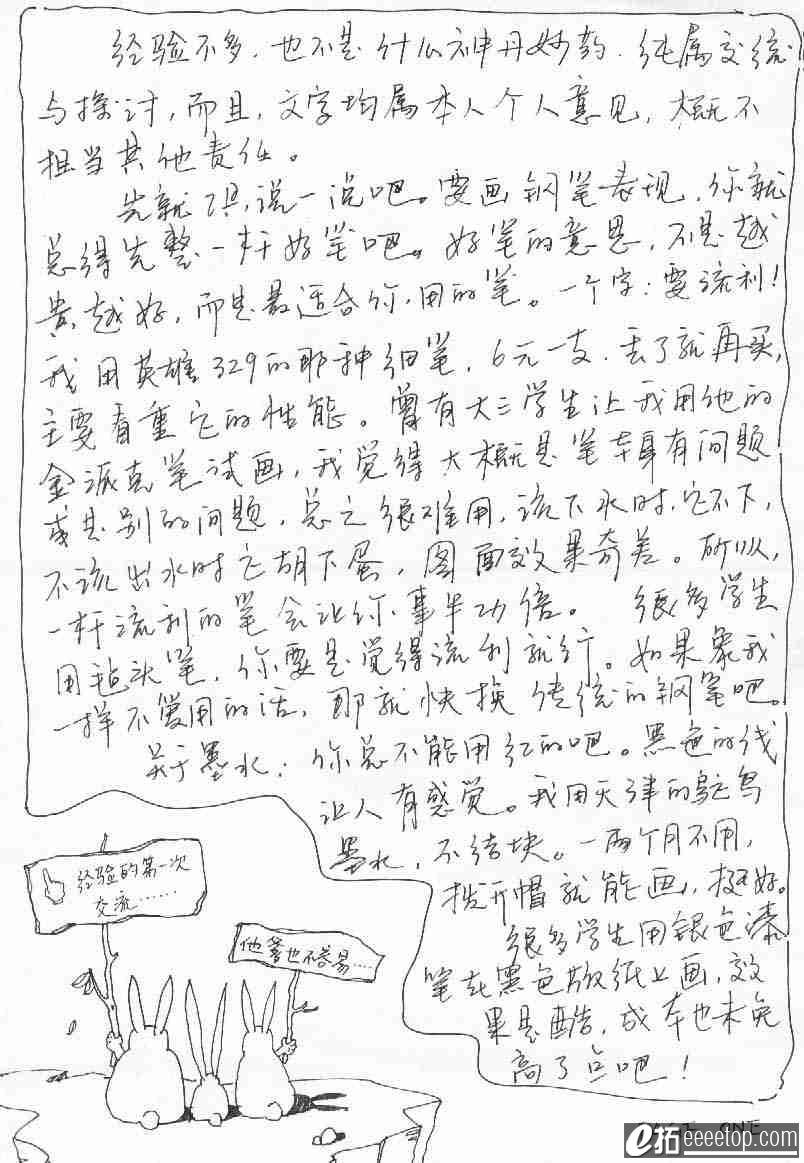 经验不多，也不是什么神丹妙药，纯属交流
与探讨，而且，文字均属本人个人意见，概不
担当其他责任。
先就工具说一说吧。要画钢笔表现，你就
总得先整一杆好笔吧。好笔的意思，不是越
贵越好，而是最适合你用的笔。一个字：要流利！
我用英雄329的那种细笔，6元一支，丢了就再买，
主要看重它的性能。曾有大三学生让我用他的
金派克笔试画，我觉得大概是笔本身有问题
或是别的问题，总之很难用，该下水时，它不下，
不该出水时它胡下蛋，图面效果奇差。所以，
一杆流利的笔会让你事半功倍。 很多学生
用毡头笔，你要是觉得流利就行。如果象我
一样不爱用的话，那就快换传统的钢笔吧。
关于墨水：你总不能用红的吧。黑色的线
让人有感觉。我用天津的鸵鸟
墨水，不结块。一两个月不用，
拨开帽就能画，挺好。
很多学生用银色漆
笔在黑色版纸上画，效
果是酷，成本也未免
高了点吧！
经验的第一次
交流……
他爹也不容易……
ONE
e拓 eeeetop.com